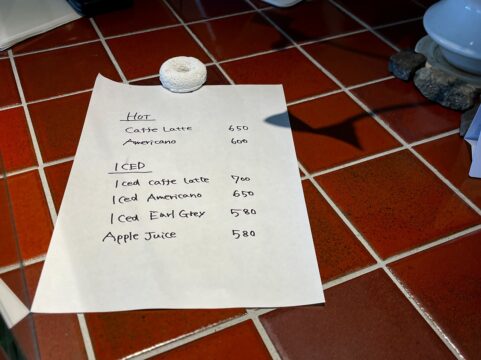 HOT
Caffe Latte 650
Americano 600
ICED
Iced caffe latte 700
Iced Americano 650
Iced Earl Grey 580
Apple Juice 580